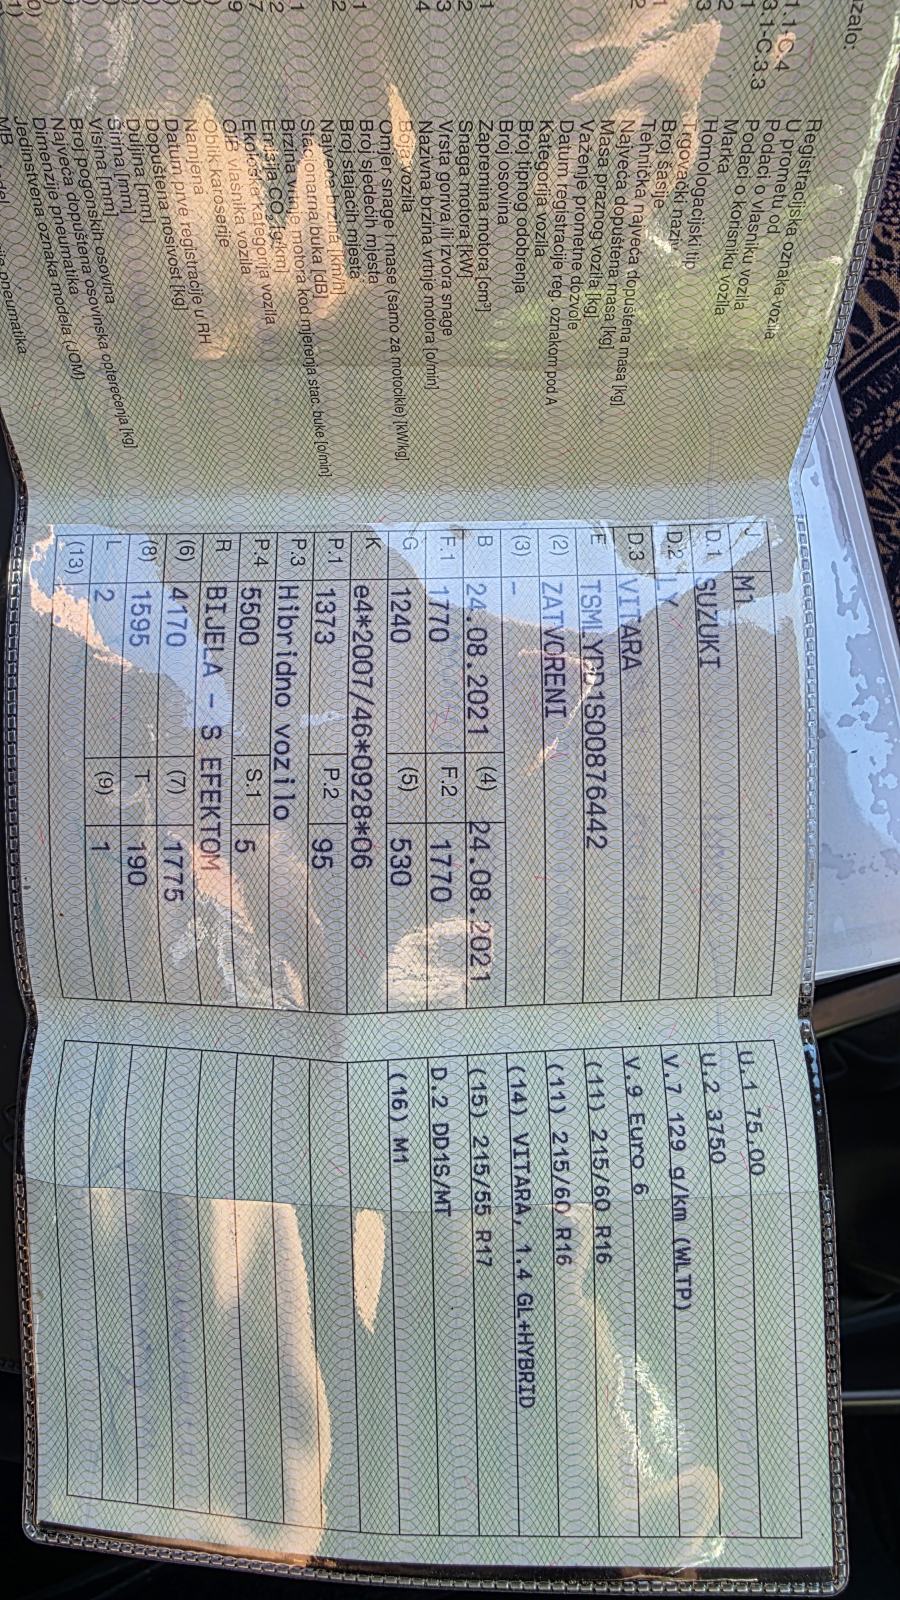 Registracijska oznaka vozila
U prometu od
Podaci o vlasniku vozila
Podaci o korisniku vozila
Marka
Homologacijski tip
Trgovački naziv
Broj šasije
Tehnička najveća dopuštena masa [kg]
Najveća dopuštena masa [kg]
Masa praznog vozila [kg]
Važenje prometne dozvole
Datum registracije reg. oznakom pod A
Kategorija vozila
Broj tipnog odobrenja
Broj osovina
Zapremina motora [cm³]
Snaga motora [kW]
Vrsta goriva ili izvora snage
Nazivna brzina vrtnje motora [o/min]
vozila
Omjer snage i mase (samo za motocikle) [kW/kg]
Broj sjedećih mjesta
Broj stajaćih mjesta
Najveća brzina [km/h]
Stacionarna buka [dB]
Brzina vrtnje motora kod mjerenja stac. buke [o/min]
kategorija vozila
OIB vlasnika vozila
Oblik karoserije
Namjena
Datum prve registracije u RH
Dopuštena nosivost [kg]
Duljina [mm]
Širina [mm]
Visina [mm]
Broj pogonskih osovina
Najveća dopuštena osovinska opterećenja [kg]
Dimenzije pneumatika
Jedinstvena oznaka modela (JOM)
J M1
D.1 SUZUKI
D.2 LY
D.3 VITARA
E
(2) ZATVORENI
(3) -
B 24.08.2021 (4) 24.08.2021
F.1 1770 F.2 1770
G 1240 (5) 530
K e4*2007/46*0928*06
P.1 1373 P.2 95
P.3 Hibridno vozilo
P.4 5500 S.1 5
R BIJELA - S EFEKTOM
(6) 4170 (7) 1775
(8) 1595 T 190
L 2 (9) 1
(13)
U.1 75,00
U.2 3750
V.7 129 g/km (WLTP)
V.9 Euro 6
(11) 215/60 R16
(11) 215/60 R16
(14) VITARA, 1.4 GL+HYBRID
(15) 215/55 R17
D.2 DD1S/MT
(16) M1